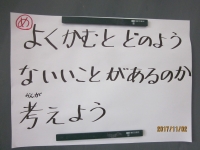 め
よくかむとどのよう
ないいことがあるのか
かんが
考えよう
2017/11/02